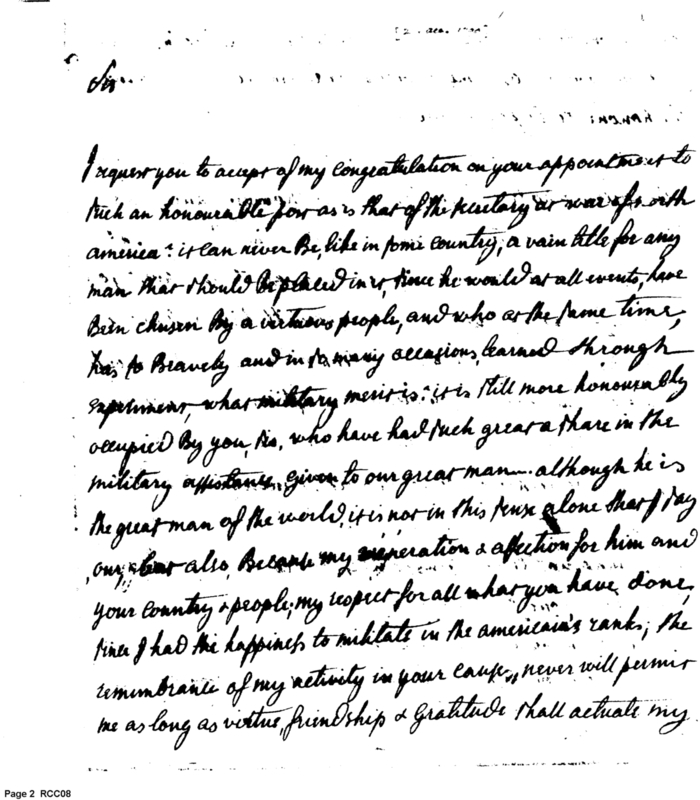 Sir
I request you to accept of my congratulation on your appointment to
such an honourable post as is that of the secretary at war of north
america: it can never Be, like in some country, a vain title for any
man that should Be placed in it, since he would at all events, have
Been chusen By a virtuous people, and who at the same time,
has so Bravely and in so many occasions, learned through
experiment, what military merit is: it is still more honourably
occupied By you, Sir, who have had such great a share in the
military assistance, given to our great man. although he is
the great man of the world, it is not in this sense alone that I say
our, but also, Because my veneration & affection for him and
your country & people; my respect for all what you have done,
since I had the happiness to militate in the american's ranks; the
remembrance of my activity in your cause, never will permit
me as long as virtue, friendship & Gratitude shall actuate my
Page 2 RCC08